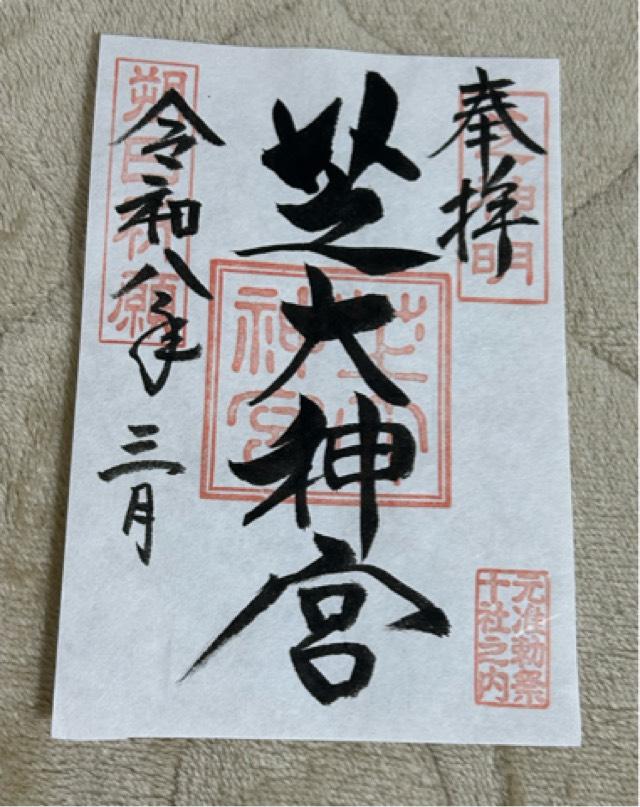 奉拝
芝神明
芝大神宮
芝大神宮
元准勅祭
十社之内
令和八年三月
朔日祈願